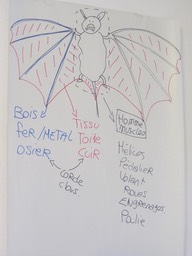 Bois
fer/METAL
osier
Tissu
Toile
Cuir
corde
clous
Homme
muscles
Hélices
Pédalier
Volant
Roues
Engrenages
Poulie